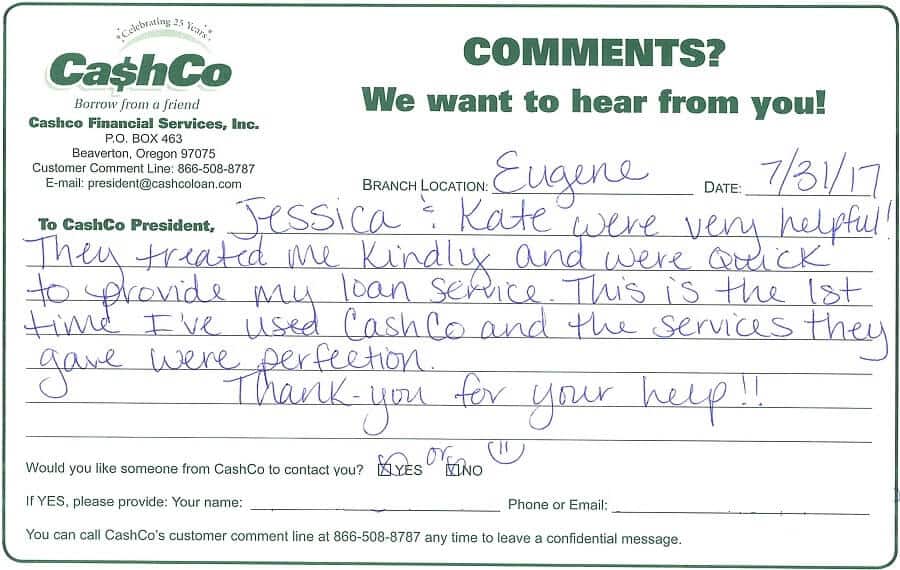 Celebrating 25 Years
Ca$hCo
Borrow from a friend
Cashco Financial Services, Inc.
P.O. BOX 463
Beaverton, Oregon 97075
Customer Comment Line: 866-508-8787
E-mail: president@cashcoloan.com
COMMENTS?
We want to hear from you!
BRANCH LOCATION: Eugene DATE: 7/31/17
To CashCo President, Jessica & Kate were very helpful!
They treated me kindly and were quick
to provide my loan service. This is the 1st
time I've used CashCo and the services they
gave were perfection.
Thank-you for your help!!
Would you like someone from CashCo to contact you? YES or NO
If YES, please provide: Your name: Phone or Email:
You can call CashCo's customer comment line at 866-508-8787 any time to leave a confidential message.